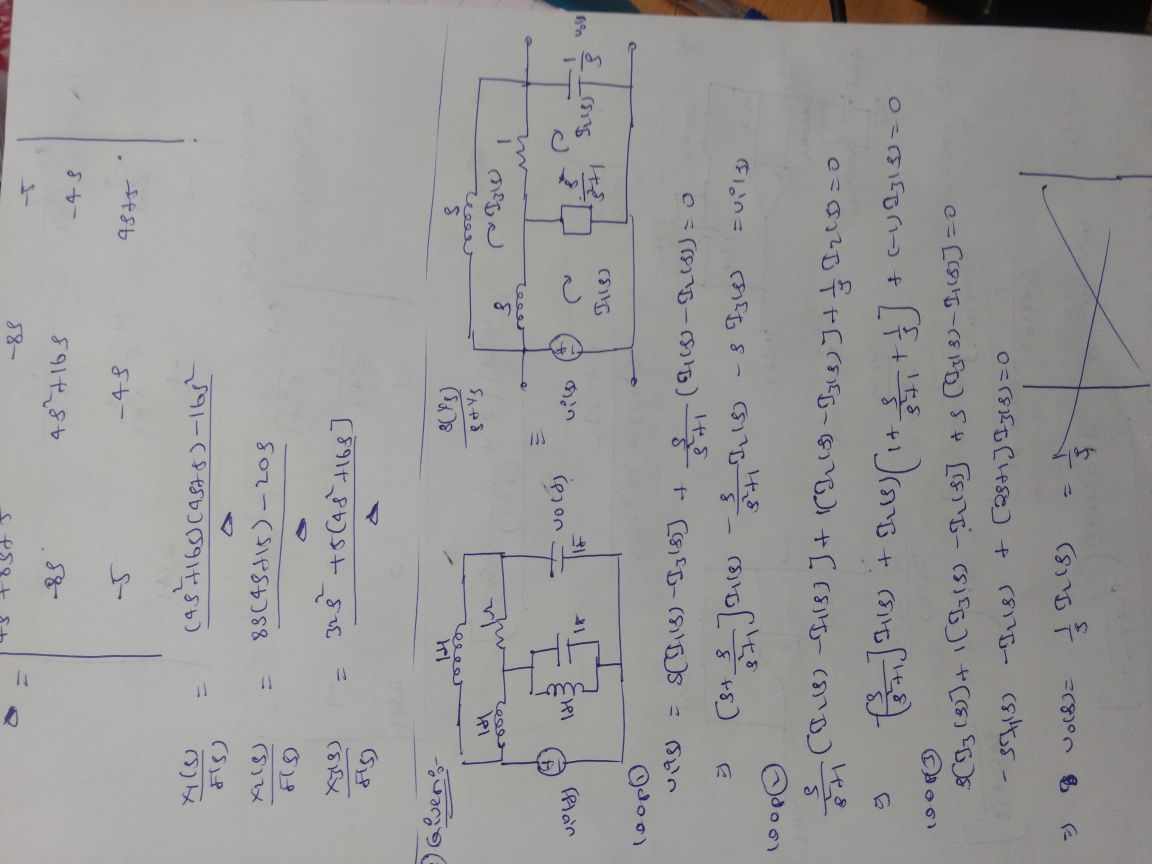 Δ = 4s²+8s+5 -8s -5
-8s 4s²+16s -4s
-5 -4s 4s+5
X1(s)/F(s) = (4s²+16s)(4s+5)-16s² / Δ
X2(s)/F(s) = 8s(4s+15)-20s / Δ
X3(s)/F(s) = 32s²+5(4s²+16s) / Δ
Given:-
1H
1H 1Ω
vi(t) 1H 1F 1F vo(t)
≡
s(1/s) / s+1/s
s
I3(s)
s 1
vi(s) I1(s) s/s²+1 I2(s) 1/s vo(s)
loop ①
vi(s) = s[I1(s)-I3(s)] + s/s²+1 (I1(s)-I2(s)) = 0
⇒ [s+ s/s²+1]I1(s) - s/s²+1 I2(s) - s I3(s) = vi(s)
loop ②
s/s²+1 (I2(s)-I1(s)] + 1[I2(s)-I3(s)] + 1/s I2(s) = 0
⇒ -[s/s²+1]I1(s) + I2(s)[1+ s/s²+1 + 1/s] + (-1)I3(s) = 0
loop ③
s[I3(s)] + 1[I3(s)-I2(s)] + s[I3(s)-I1(s)] = 0
-sI1(s) -I2(s) + [2s+1]I3(s) = 0
⇒ vo(s) = 1/s I2(s) = 1/s